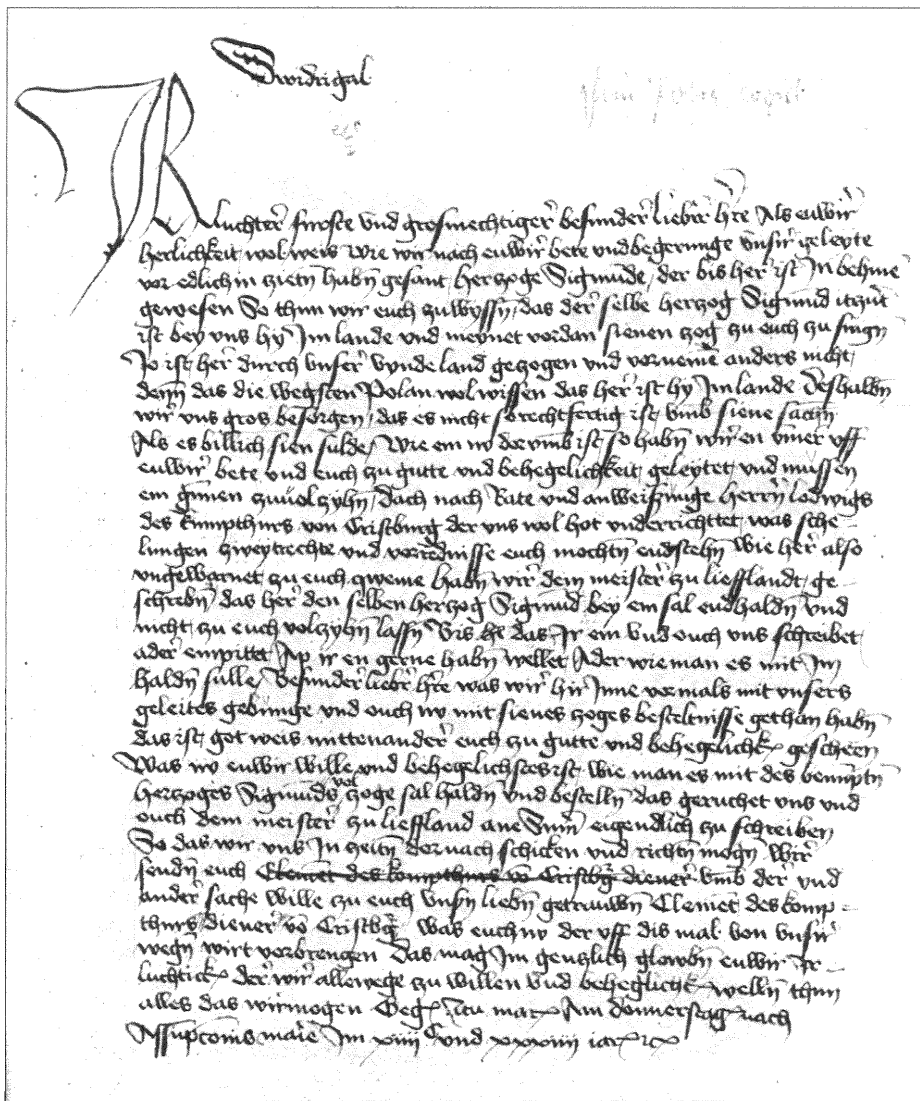 Swidrigal
IRluchter furste und grosmechtiger besunder lieber h're Als euwir
herlichkeit wol weis wie wir nach euwir bete und begerunge unsir geleyte
vor edlichin zietn habn gesant herzoge Sigmunde, der bis her ist In behme
gewesen So thun wir euch zuwyssn, das der selbe herzog Sigmund itzunt
ist bey uns hy Im lande und meynet vordan sienen zog zu euch zu
Jo ist her durch unser lande gezogen und vornemen anders nicht,
denn das die Polan wol wissen das her ist hy Im lande Deshalbn
wir uns gros besorgen, das es nicht so rechtfertig ist umb siene sachn
Als es billich sien sulde, Wie em nw dorumb ist, so habn wir en ummer uff
euwir bete und euch zu gutte und behegelichkeit geleytet, und mussen
em gunnen zuvolzyhn, Doch nach Rate und anweisunge herrn lodwigs
des kumpthurs von Cristburg der uns wol hot underrichttet, was sche-
lungen zweytrechte und vorrednisse euch mochtn endstehn, wie her also
ungewarnet, zu euch qweme habn wir dem meister zu liefflandt, ge-
schrebn, das her den selben herzog Sigmund bey em sal endhaldn Und
nicht, zu euch volzyhn lassn Bis das Ir em Und ouch uns schreibet
ader empittet, Ap ir en gerne habn wellet, Ader wie man es mit Im
haldn sulle, Besunder lieber h're was wir hir Inne vormals mit unsers
geleites gebunge und ouch nw mit sienes zoges besteltnisse gethan habn
das ist, got weis mittenander euch zu gutte und behegelichk gescheen
Was nw euwir wille und behegelichstes ist, wie man es mit des benumptn
herzoges Sigmunds vol zoge sal haldn und bestelln das geruchet uns und
ouch dem meister zu lieffland ane Sumen eigendlich zu schreiben
So das wir uns In zeitn dornach schicken und richtn mogn, Wir
sendn euch Clemet des kompthurs vo Cristbg diener umb der und
ander sache wille zu euch unsn liebn getruwn Clemet des komp-
thurs diener vo Cristbg was euch nw der uff dis mal von unsir
wegn wirt vorbrengen Das mag Im genzlich glowbn euwir Ir-
luchtick der wir allewege zu willen und behegelichk welln thun
alles das wir mogen Geg mar Am Donnerstag nach
Assupconis marie Im xiiii C und xxxiiii iar